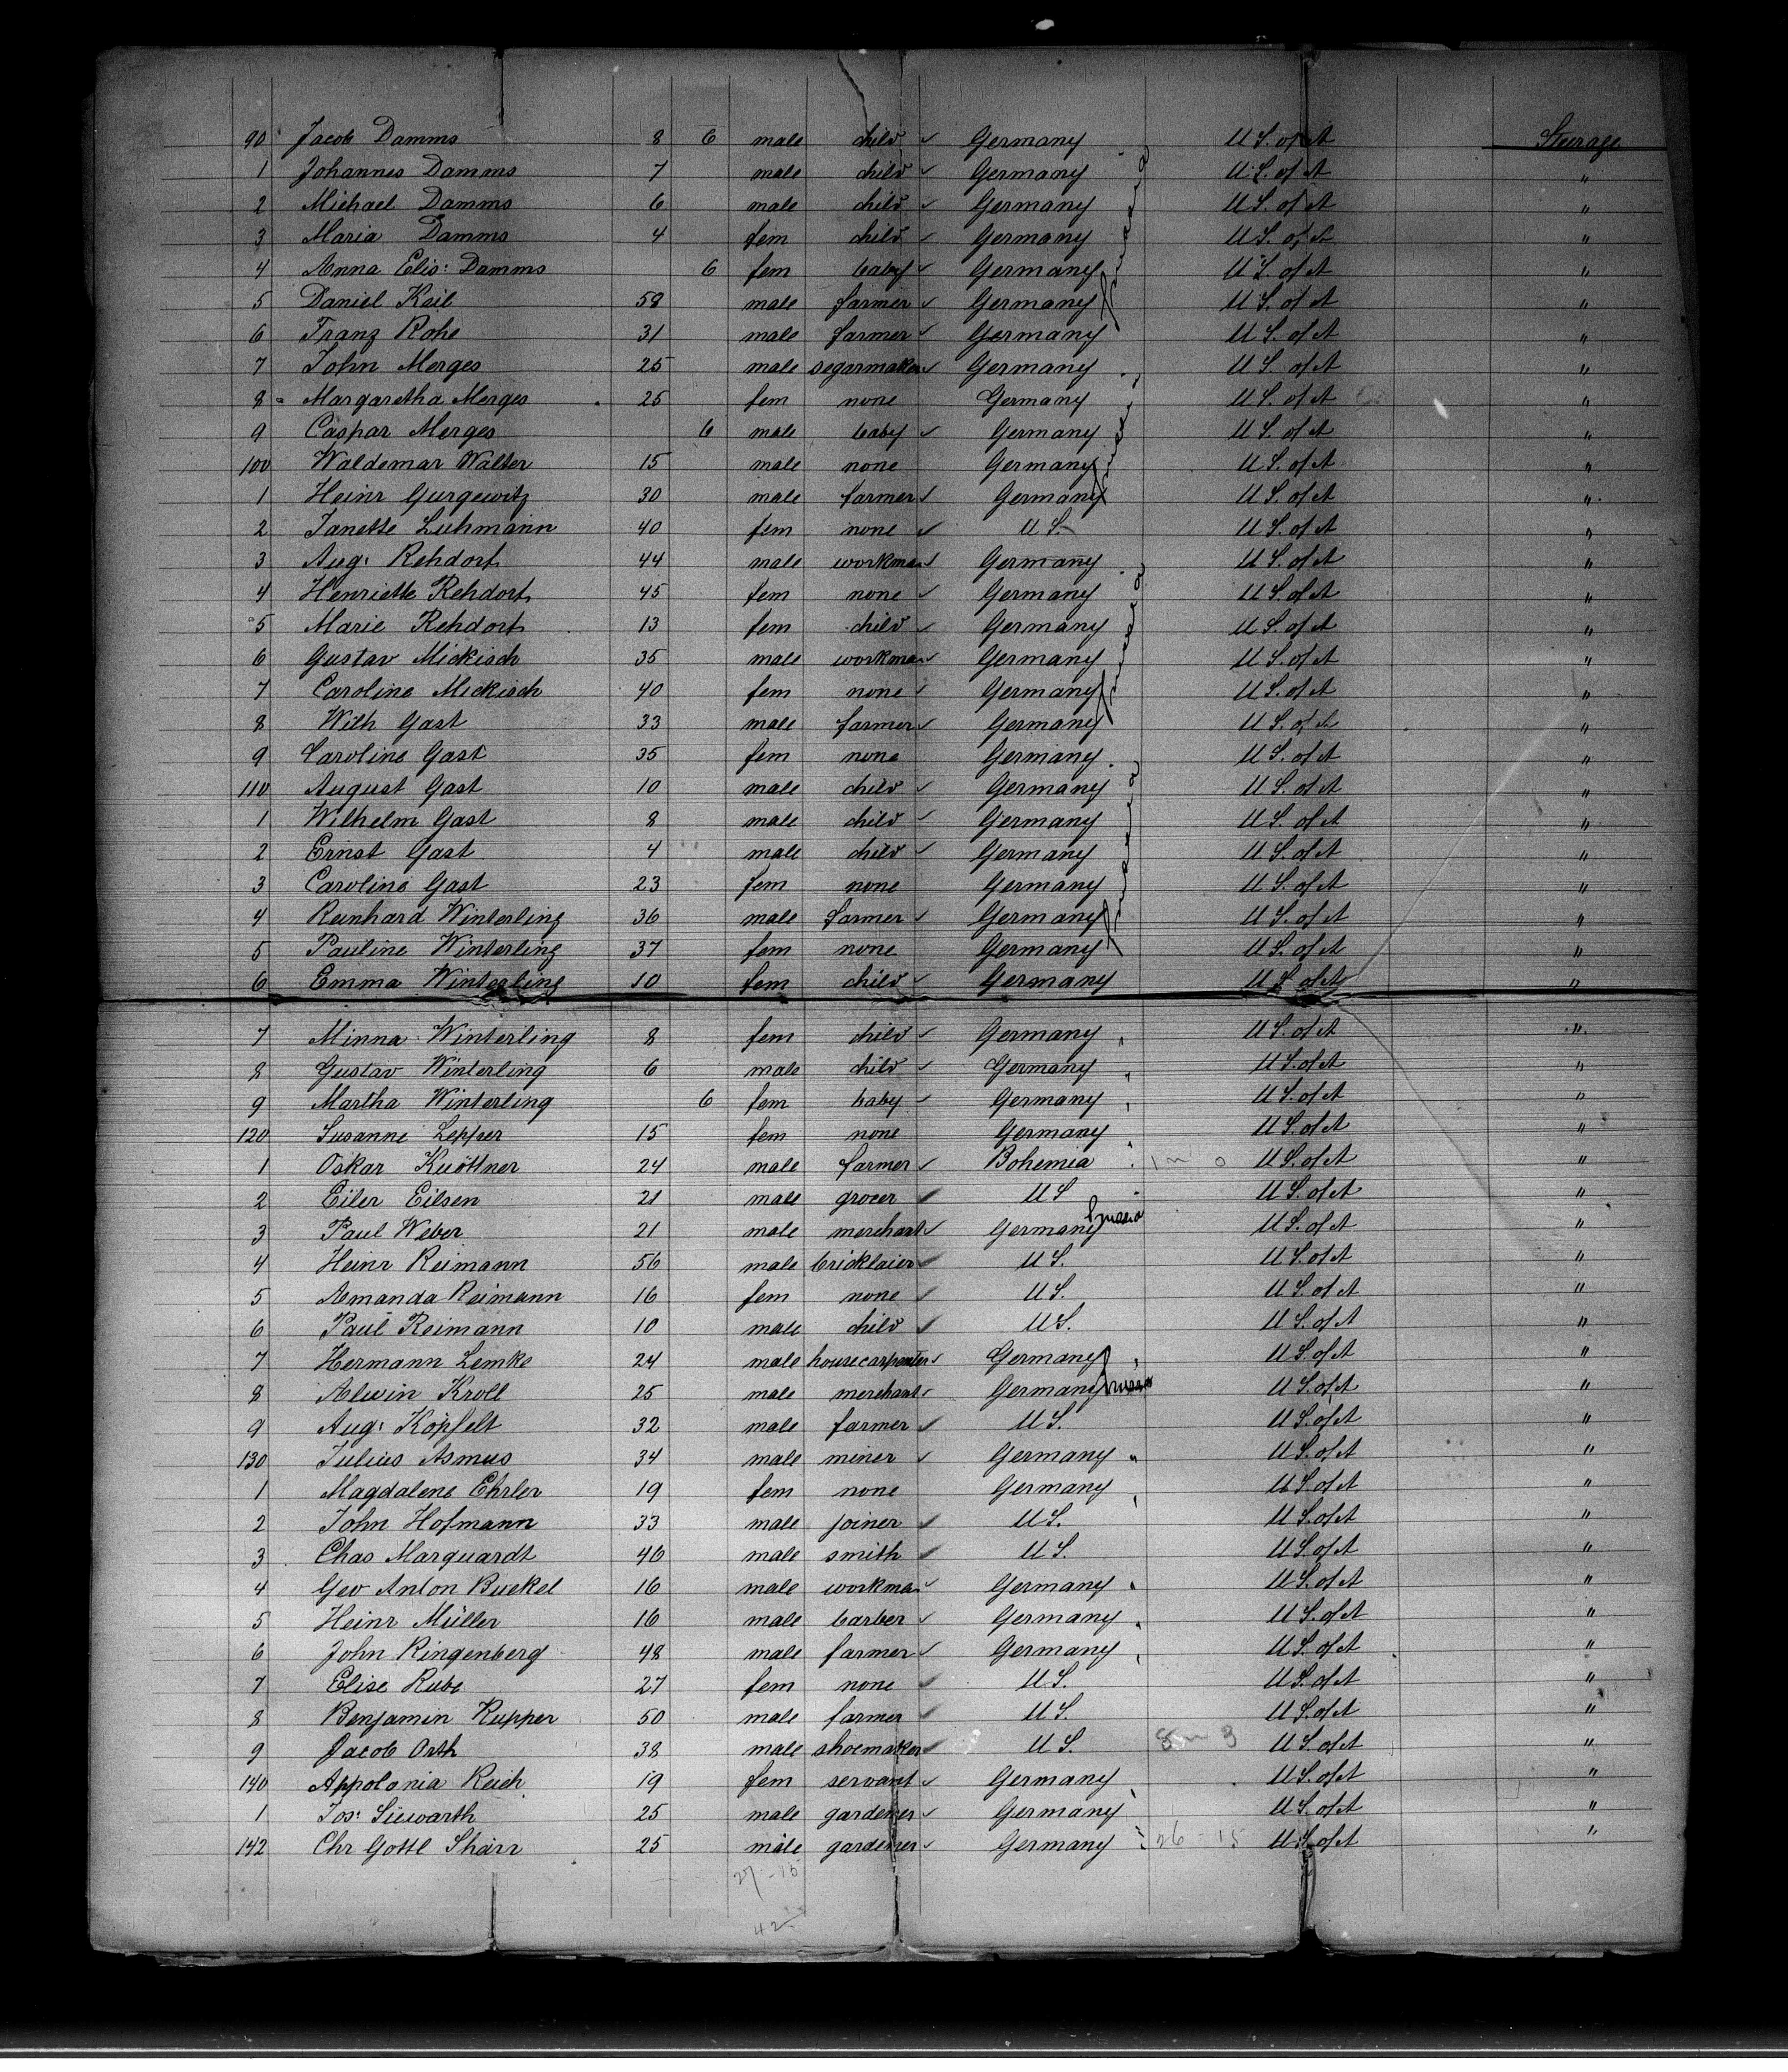 90 Jacob Damms 8 6 male child ✓ Germany U S. of A Steerage
1 Johannes Damms 7 male child ✓ Germany U. S. of A "
2 Michael Damms 6 male child ✓ Germany U S. of A "
3 Maria Damms 4 fem child ✓ Germany U S. of A "
4 Anna Elis: Damms 6 fem baby ✓ Germany U S. of A "
5 Daniel Keil 58 male farmer ✓ Germany U S. of A "
6 Franz Rohe 31 male farmer ✓ Germany U S. of A "
7 John Merges 25 male segarmaker ✓ Germany U S. of A "
8 Margaretha Merges 25 fem none Germany U S. of A "
9 Caspar Merges 6 male baby ✓ Germany U S. of A "
100 Waldemar Walter 15 male none Germany U S. of A "
1 Heinr Gurgewitz 30 male farmer ✓ Germany U S. of A "
2 Janette Luhmann 40 fem none ✓ U S. U S. of A "
3 Aug: Rehdorf 44 male workman ✓ Germany U S. of A "
4 Henriette Rehdorf 45 fem none ✓ Germany U S. of A "
5 Marie Rehdorf 13 fem child ✓ Germany U S. of A "
6 Gustav Mickisch 35 male workman ✓ Germany U S. of A "
7 Caroline Mickisch 40 fem none ✓ Germany U S. of A "
8 Wilh Gast 33 male farmer ✓ Germany U S. of A "
9 Caroline Gast 35 fem none Germany U S. of A "
110 August Gast 10 male child ✓ Germany U S. of A "
1 Wilhelm Gast 8 male child ✓ Germany U S. of A "
2 Ernst Gast 4 male child ✓ Germany U S. of A "
3 Caroline Gast 23 fem none Germany U S. of A "
4 Reinhard Winterling 36 male farmer ✓ Germany U S. of A "
5 Pauline Winterling 37 fem none Germany U S. of A "
6 Emma Winterling 10 fem child ✓ Germany U S. of A "
7 Minna Winterling 8 fem child ✓ Germany " U S. of A "
8 Gustav Winterling 6 male child ✓ Germany " U S. of A "
9 Martha Winterling 6 fem baby ✓ Germany " U S. of A "
120 Susanne Lepper 15 fem none Germany " U S. of A "
1 Oskar Kuöttner 24 male farmer ✓ Bohemia U S. of A "
2 Eiler Eilsen 21 male grocer ✓ U S U S. of A "
3 Paul Weber 21 male merchant ✓ Germany Prussia U S. of A "
4 Heinr Reimann 56 male bricklaier ✓ U S. U S. of A "
5 Amanda Reimann 16 fem none ✓ U S. U S. of A "
6 Paul Reimann 10 male child ✓ U S. U S. of A "
7 Hermann Lemke 24 male housecarpenter ✓ Germany " U S. of A "
8 Alwin Kroll 25 male merchant ✓ Germany Prussia U S. of A "
9 Aug: Köpfelt 32 male farmer ✓ U S. U S. of A "
130 Julius Asmus 34 male miner ✓ Germany " U S. of A "
1 Magdalene Ehrler 19 fem none Germany " U S. of A "
2 John Hofmann 33 male joiner ✓ U S. U S. of A "
3 Chas Marquardt 46 male smith ✓ U S. U S. of A "
4 Geo Anton Buekel 16 male workman ✓ Germany " U S. of A "
5 Heinr Müller 16 male barber ✓ Germany " U S. of A "
6 John Ringenberg 48 male farmer ✓ Germany " U S. of A "
7 Elise Rube 27 fem none ✓ U S. U S. of A "
8 Benjamin Rupper 50 male farmer ✓ U S. U S. of A "
9 Jacob Orth 38 male shoemaker ✓ U S. U S. of A "
140 Appolonia Reich 19 fem servant ✓ Germany " U S. of A "
1 Jos: Siewarth 25 male gardener ✓ Germany U S. of A "
142 Chr Gottl Shärr 25 male gardener ✓ Germany 26 - 15 U S. of A "
27 - 15
42